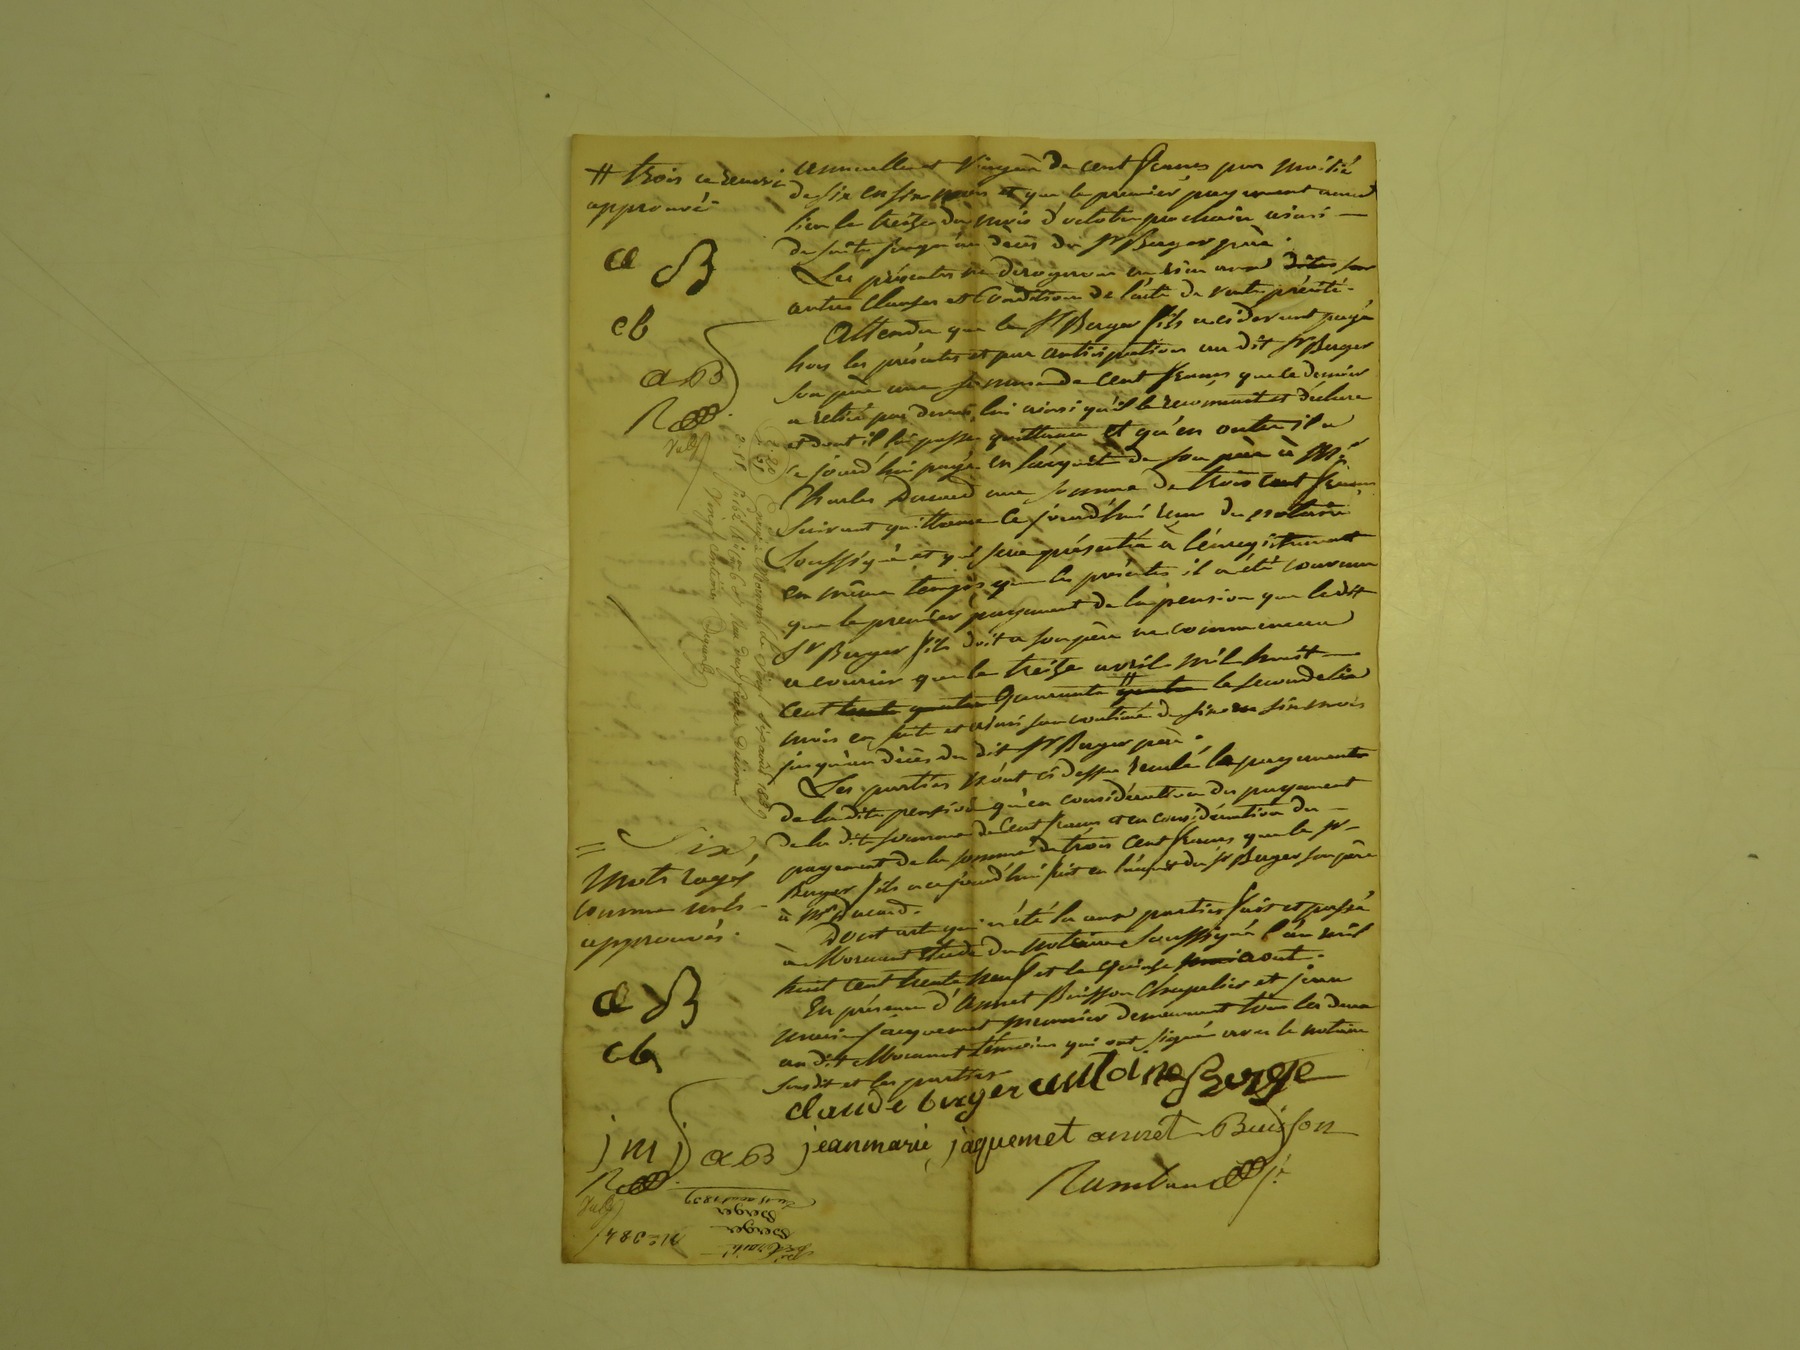 annuelle et viagère de cent francs par moitié
de six en six mois et que le premier payement aura
lieu le treize du mois d'octobre prochain ainsi
de suite jusqu'au décès du Sr Berger père.
Les présentes ne dérogeront en rien aux
autres clauses et conditions de l'acte de vente précité.
Attendu que le Sr Berger fils a ci devant payé
hors les présentes et par anticipation au dit Sr Berger
son père une somme de cent francs que ce dernier
a retiré par devers lui ainsi qu'il le reconnait et déclare
et dont il lui passe quittance et qu'en outre il a
ce jourd'hui payé en l'acquit de son père à Mr
Charles Ducard une somme de trois cent francs
suivant quittance ce jourd'hui reçue du notaire
soussigné et qui sera présentée à l'enregistrement
en même temps que les présentes il a été convenu
que le premier payement de la pension que le dit
Sr Berger fils doit a son père ne commencera
a courrir que le treize avril mil huit
cent trente quatre quarante quatre le second six
mois en suite et ainsi sera continué de six en six mois
jusqu'au décès du dit Sr Berger père.
Les parties n'ont ci dessus reculé les payements
de la dite pension qu'en considération du payement
de la dite somme de cent francs et en considération du
payement de la somme de trois cent francs que le Sr
Berger fils a ce jourd'hui fait en l'acquit du Sr Berger son père
à Mr Ducard.
Dont acte qui a été lu aux parties fait et passé
à Mornant étude du notaire soussigné l'an mil
huit cent trente neuf et le quinze août.
En présence d'Annet Buisson chapelier et jean
marie jacquemet menuisier demeurant tous les deux
au dit Mornant témoins qui ont signé avec le notaire
susdit et les parties
claude berger antoine Berge
jeanmarie jaquemet annet Buisson
# trois ce renvoi
approuvé
CB
cb
a B
= Six
mots rayés
comme nuls
approuvés.
CB
cb
j m j a B
du 15 août 1839
Berger
Berger